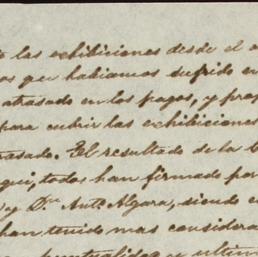 las exhibiciones desde el
os que habiamos sufrido en
atrasado en los pagos, y
para cubrir las exhibiciones
rasado. El resultado de la
qui, todos han firmado por
y Dn. Ant. Algara, siendo
han tenido mas considera
puntualidad y ultim